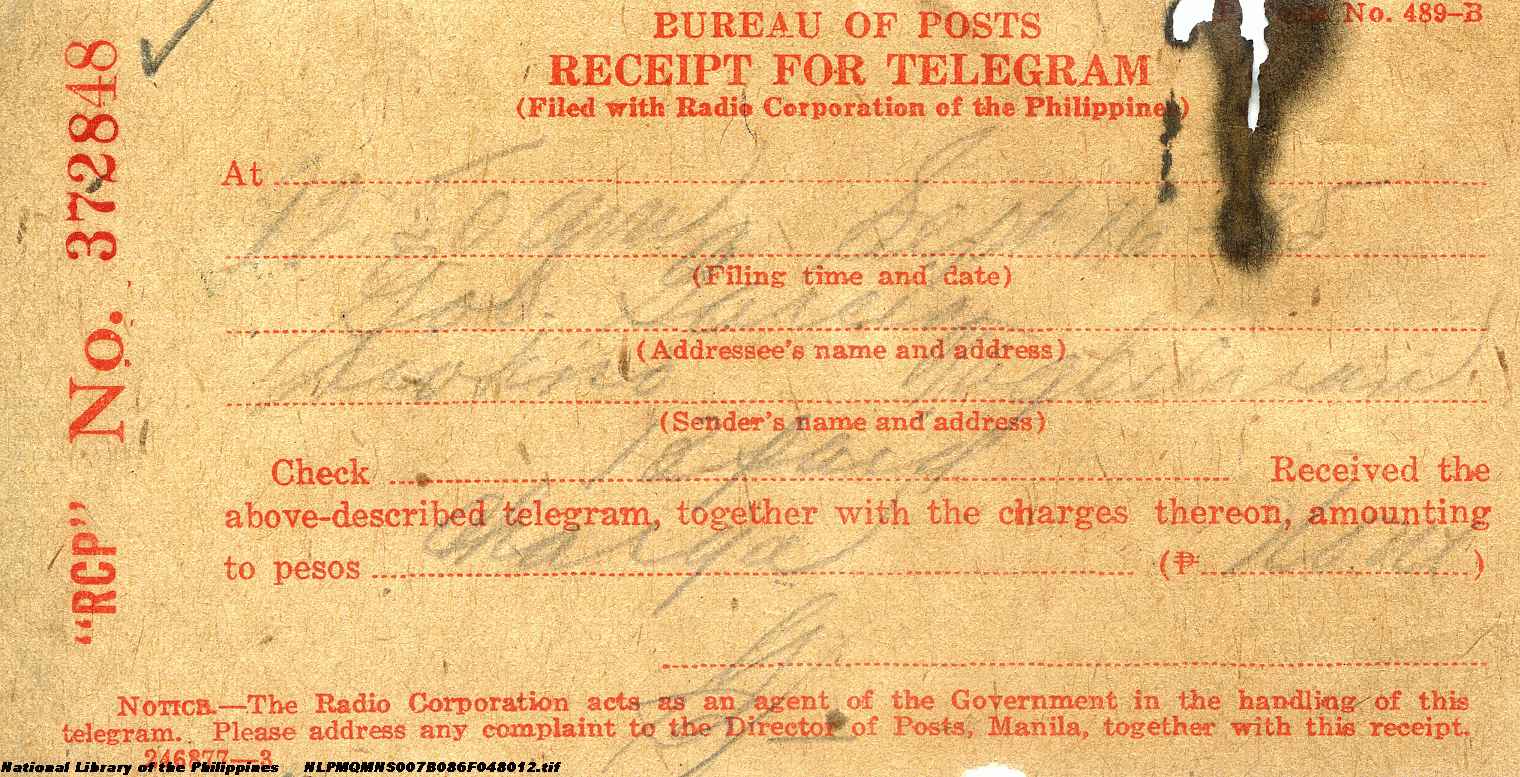 No. 489–B
BUREAU OF POSTS
RECEIPT FOR TELEGRAM
(Filed with Radio Corporation of the Philippines)
"RCP" No. 372848
At
Sept 16
(Filing time and date)
Gov. Garcia
(Addressee's name and address)
(Sender's name and address)
Check paid Received the
above-described telegram, together with the charges thereon, amounting
to pesos Charge (₱ )
NOTICE.—The Radio Corporation acts as an agent of the Government in the handling of this
telegram. Please address any complaint to the Director of Posts, Manila, together with this receipt.
246877—3
National Library of the Philippines NLPMQMNS007B086F048012.tif